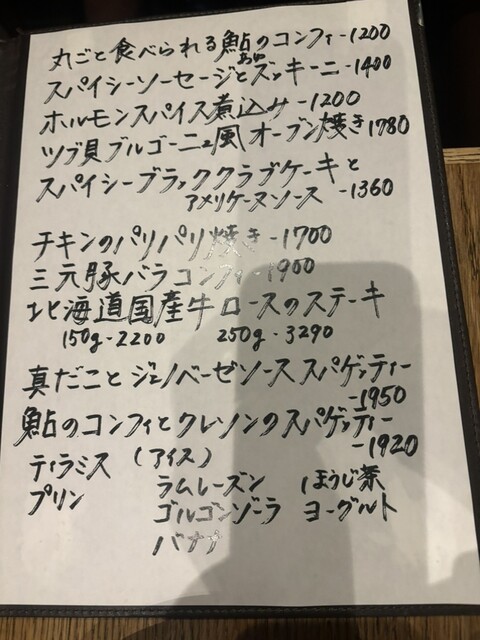 丸ごと食べられる鮎のコンフィ-1200
あゆ
スパイシーソーセージとズッキーニ-1400
ホルモンスパイス煮込み-1200
ツブ貝ブルゴーニュ風オーブン焼き1780
スパイシーブラッククラブケーキと
アメリケーヌソース -1360
チキンのパリパリ焼き-1700
三元豚バラコンフィ-1900
北海道国産牛ロースのステーキ
150g-2200 250g-3290
真だことジェノベーゼソーススパゲッティー
-1950
鮎のコンフィとクレソンのスパゲッティー
-1920
ティラミス (アイス)
プリン ラムレーズン ほうじ茶
ゴルゴンゾーラ ヨーグルト
バナナ